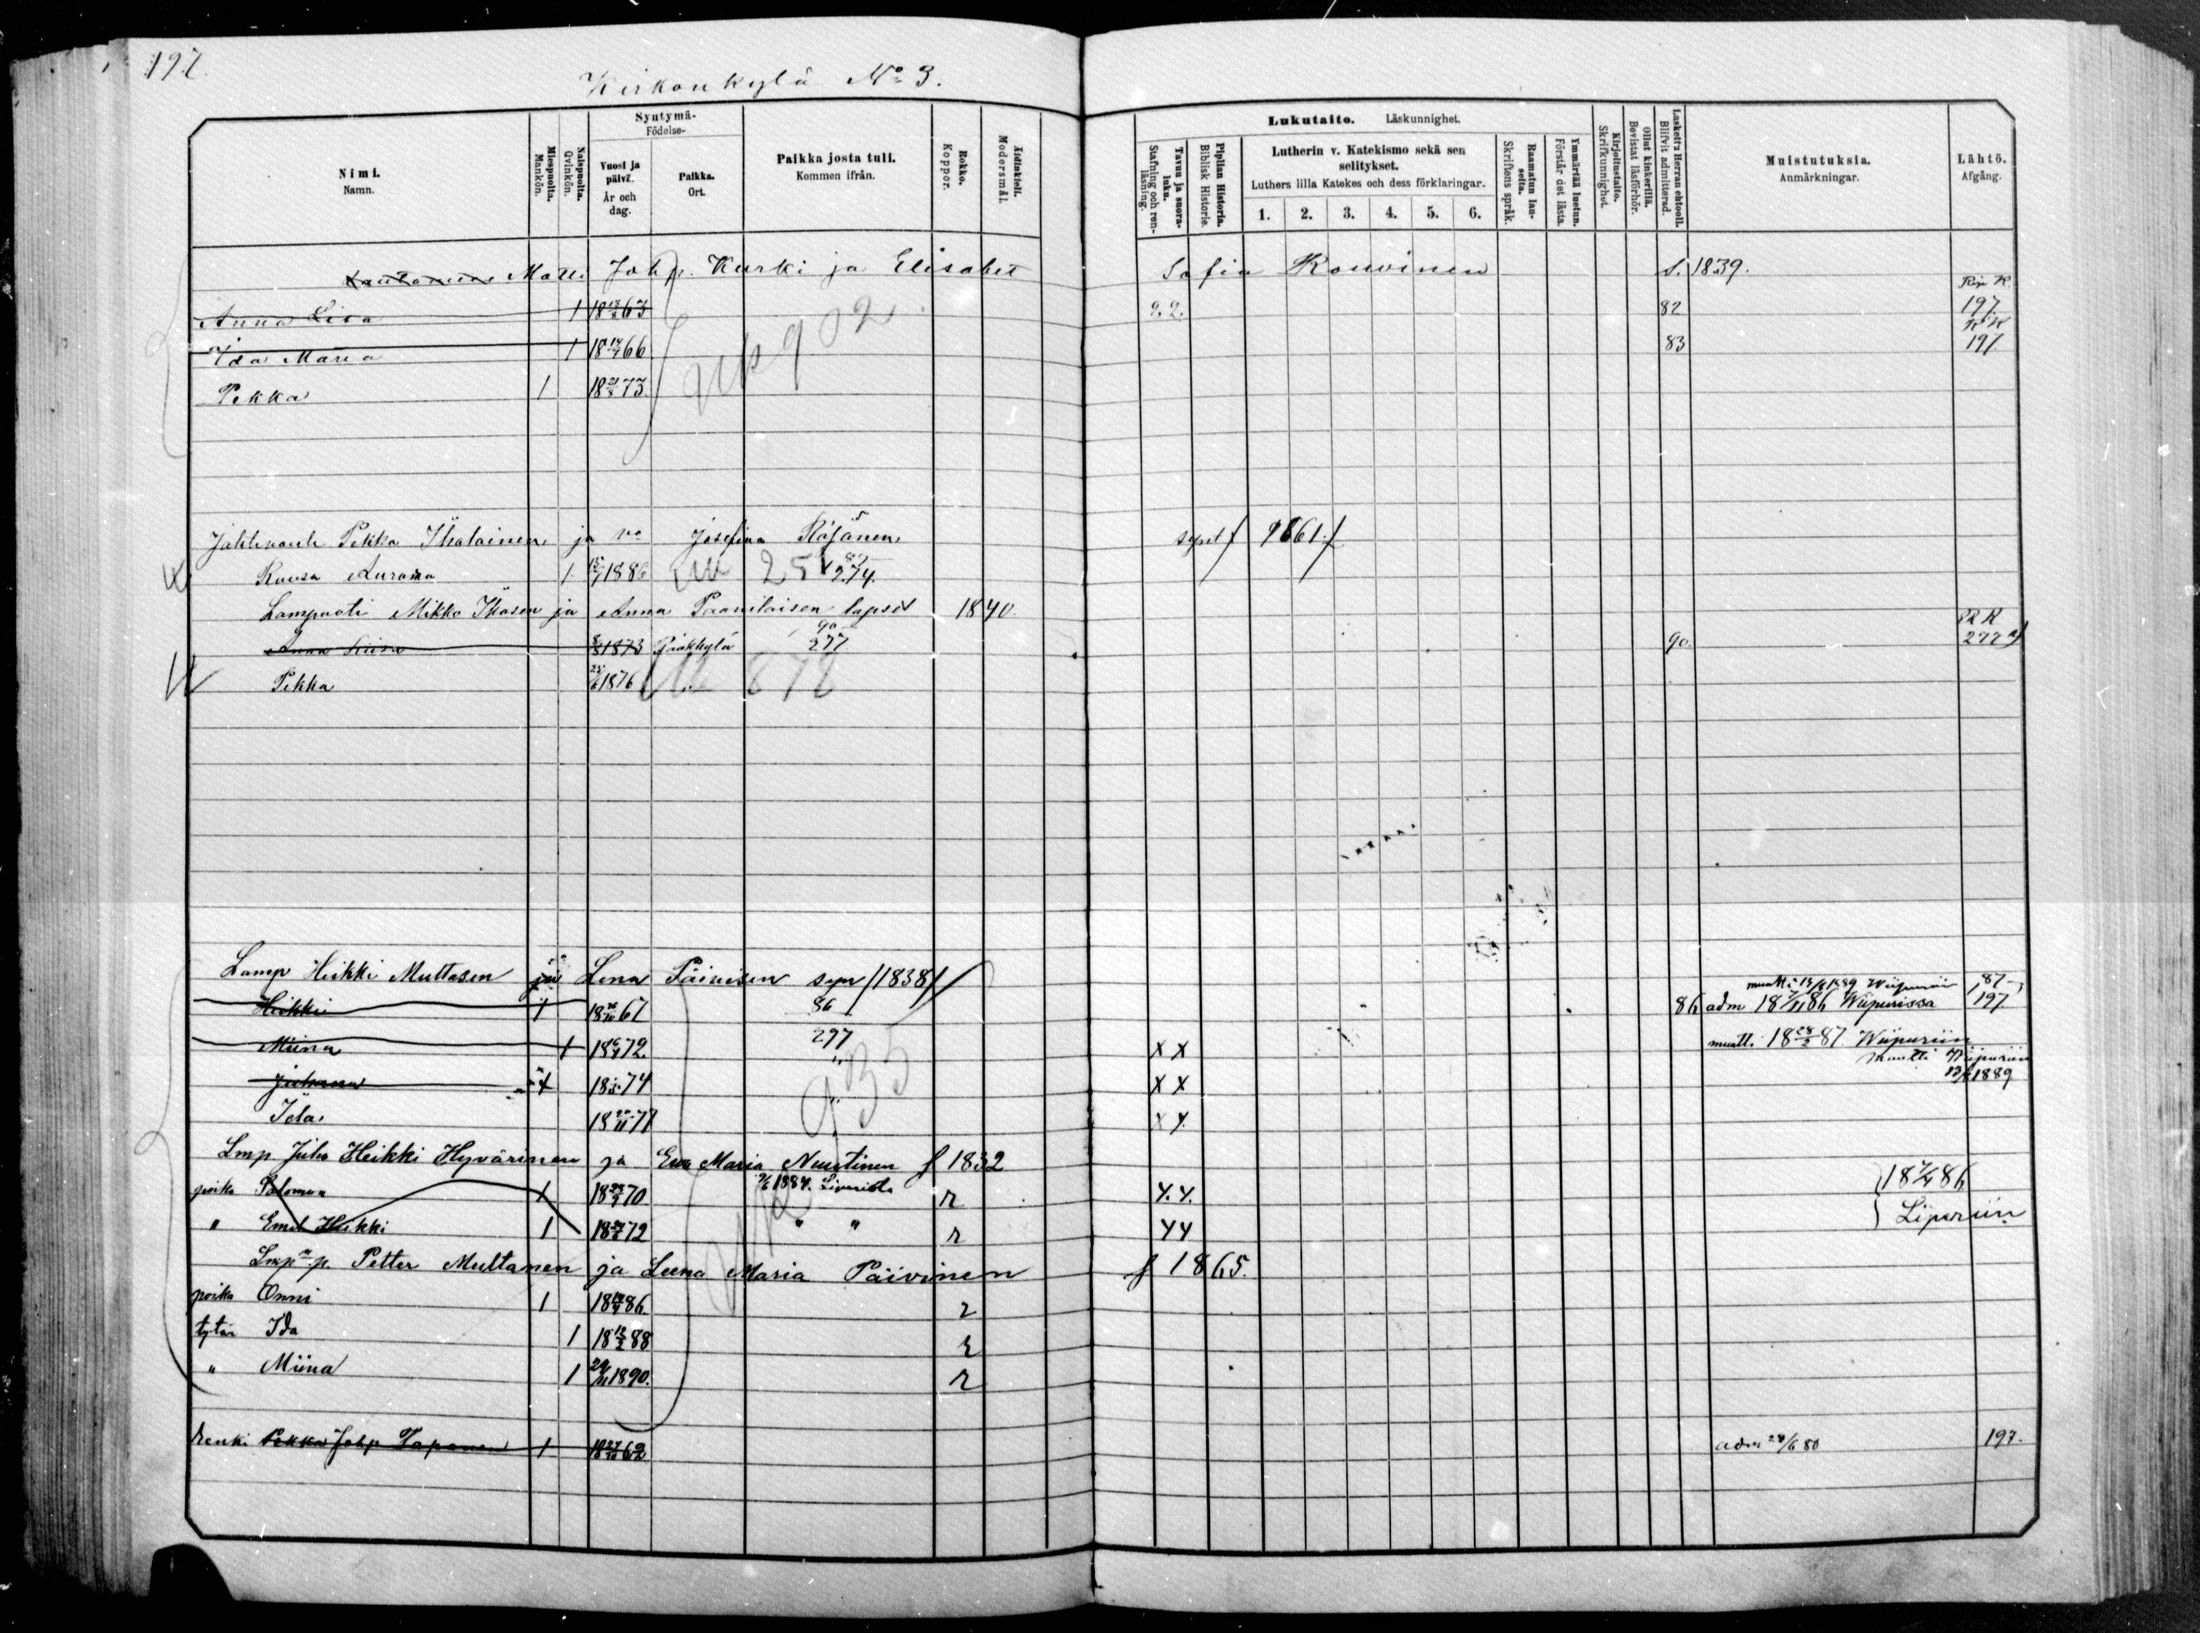 197.
Kirkonkylä No 3.
Nimi. Namn.
Miespuolta. Mankön.
Naispuolta. Qvinkön.
Syntymä- Födelse-
Vuosi ja päivä. År och dag.
Paikka. Ort.
Paikka josta tuli. Kommen ifrån.
Rokko. Koppor.
Äidinkieli. Modersmål.
Lukutaito. Läskunnighet.
Tavuu ja suora-luku. Stafning och ren-läsning.
Piplian Historia. Biblisk Historie.
Lutherin v. Katekismo sekä sen selitykset.
Luthers lilla Katekes och dess förklaringar.
1. 2. 3. 4. 5. 6.
Raamatun lau-seita. Skriftens språk.
Ymmärtää luetun. Förstår det lästa.
Kirjoitustaito. Skrifkunnighet.
Ollut kinkerillä. Bevistat läsförhör.
Laskettu Herran ehtooll. Blifvit admitterad.
Muistutuksia. Anmärkningar.
Lähtö. Afgång.
Matti Joh p. Kurki ja Elisabet Sofia Rouvinen s. 1839.
Anna Lisa 1 18 63 82 197
Ida Maria 1 18 66 83 191
Pekka 1 18 73
902
Pekka Ikalainen ja vo Josefina synt / 1861 /
1 1886 274.
Mikko Ikosen ja Anna lapset 1840.
Anna Liisa 1873 Rääkkylä 90 277 90. 277
Pekka 25/6 1876 878
Lamp Heikki Multasen ja Lena Päivisen synt /1838/
Heikki 1 18 67 86 86 adm 18 86 Wiipurissa 197
muutti 1889 Wiipuriin 87
Miina 1 18 72 297 x x muutti 18 28/2 87. Wiipuriin
Juhana 1 18 74 " x x muutti Wiipuriin 1889
Ida 18 20/11 77 x x
935
Lmp Juho Heikki Hyvärinen ja Eva Maria Nuutinen f 1832
poika Salomon 1 18 70 1884. Liperistä r x. x. 18 86
" Emil Heikki 1 18 72 " " r x x Liperiin
Lmp n. p. Petter Multanen ja Leena Maria Päivinen f 1865.
poika Onni 1 18 86 r
tytär Ida 1 18 88 r
" Miina 1 29/11 1890. r
renki Pekka Joh p Taponen 1 18 27/10 62 adm 28/6 80 197.